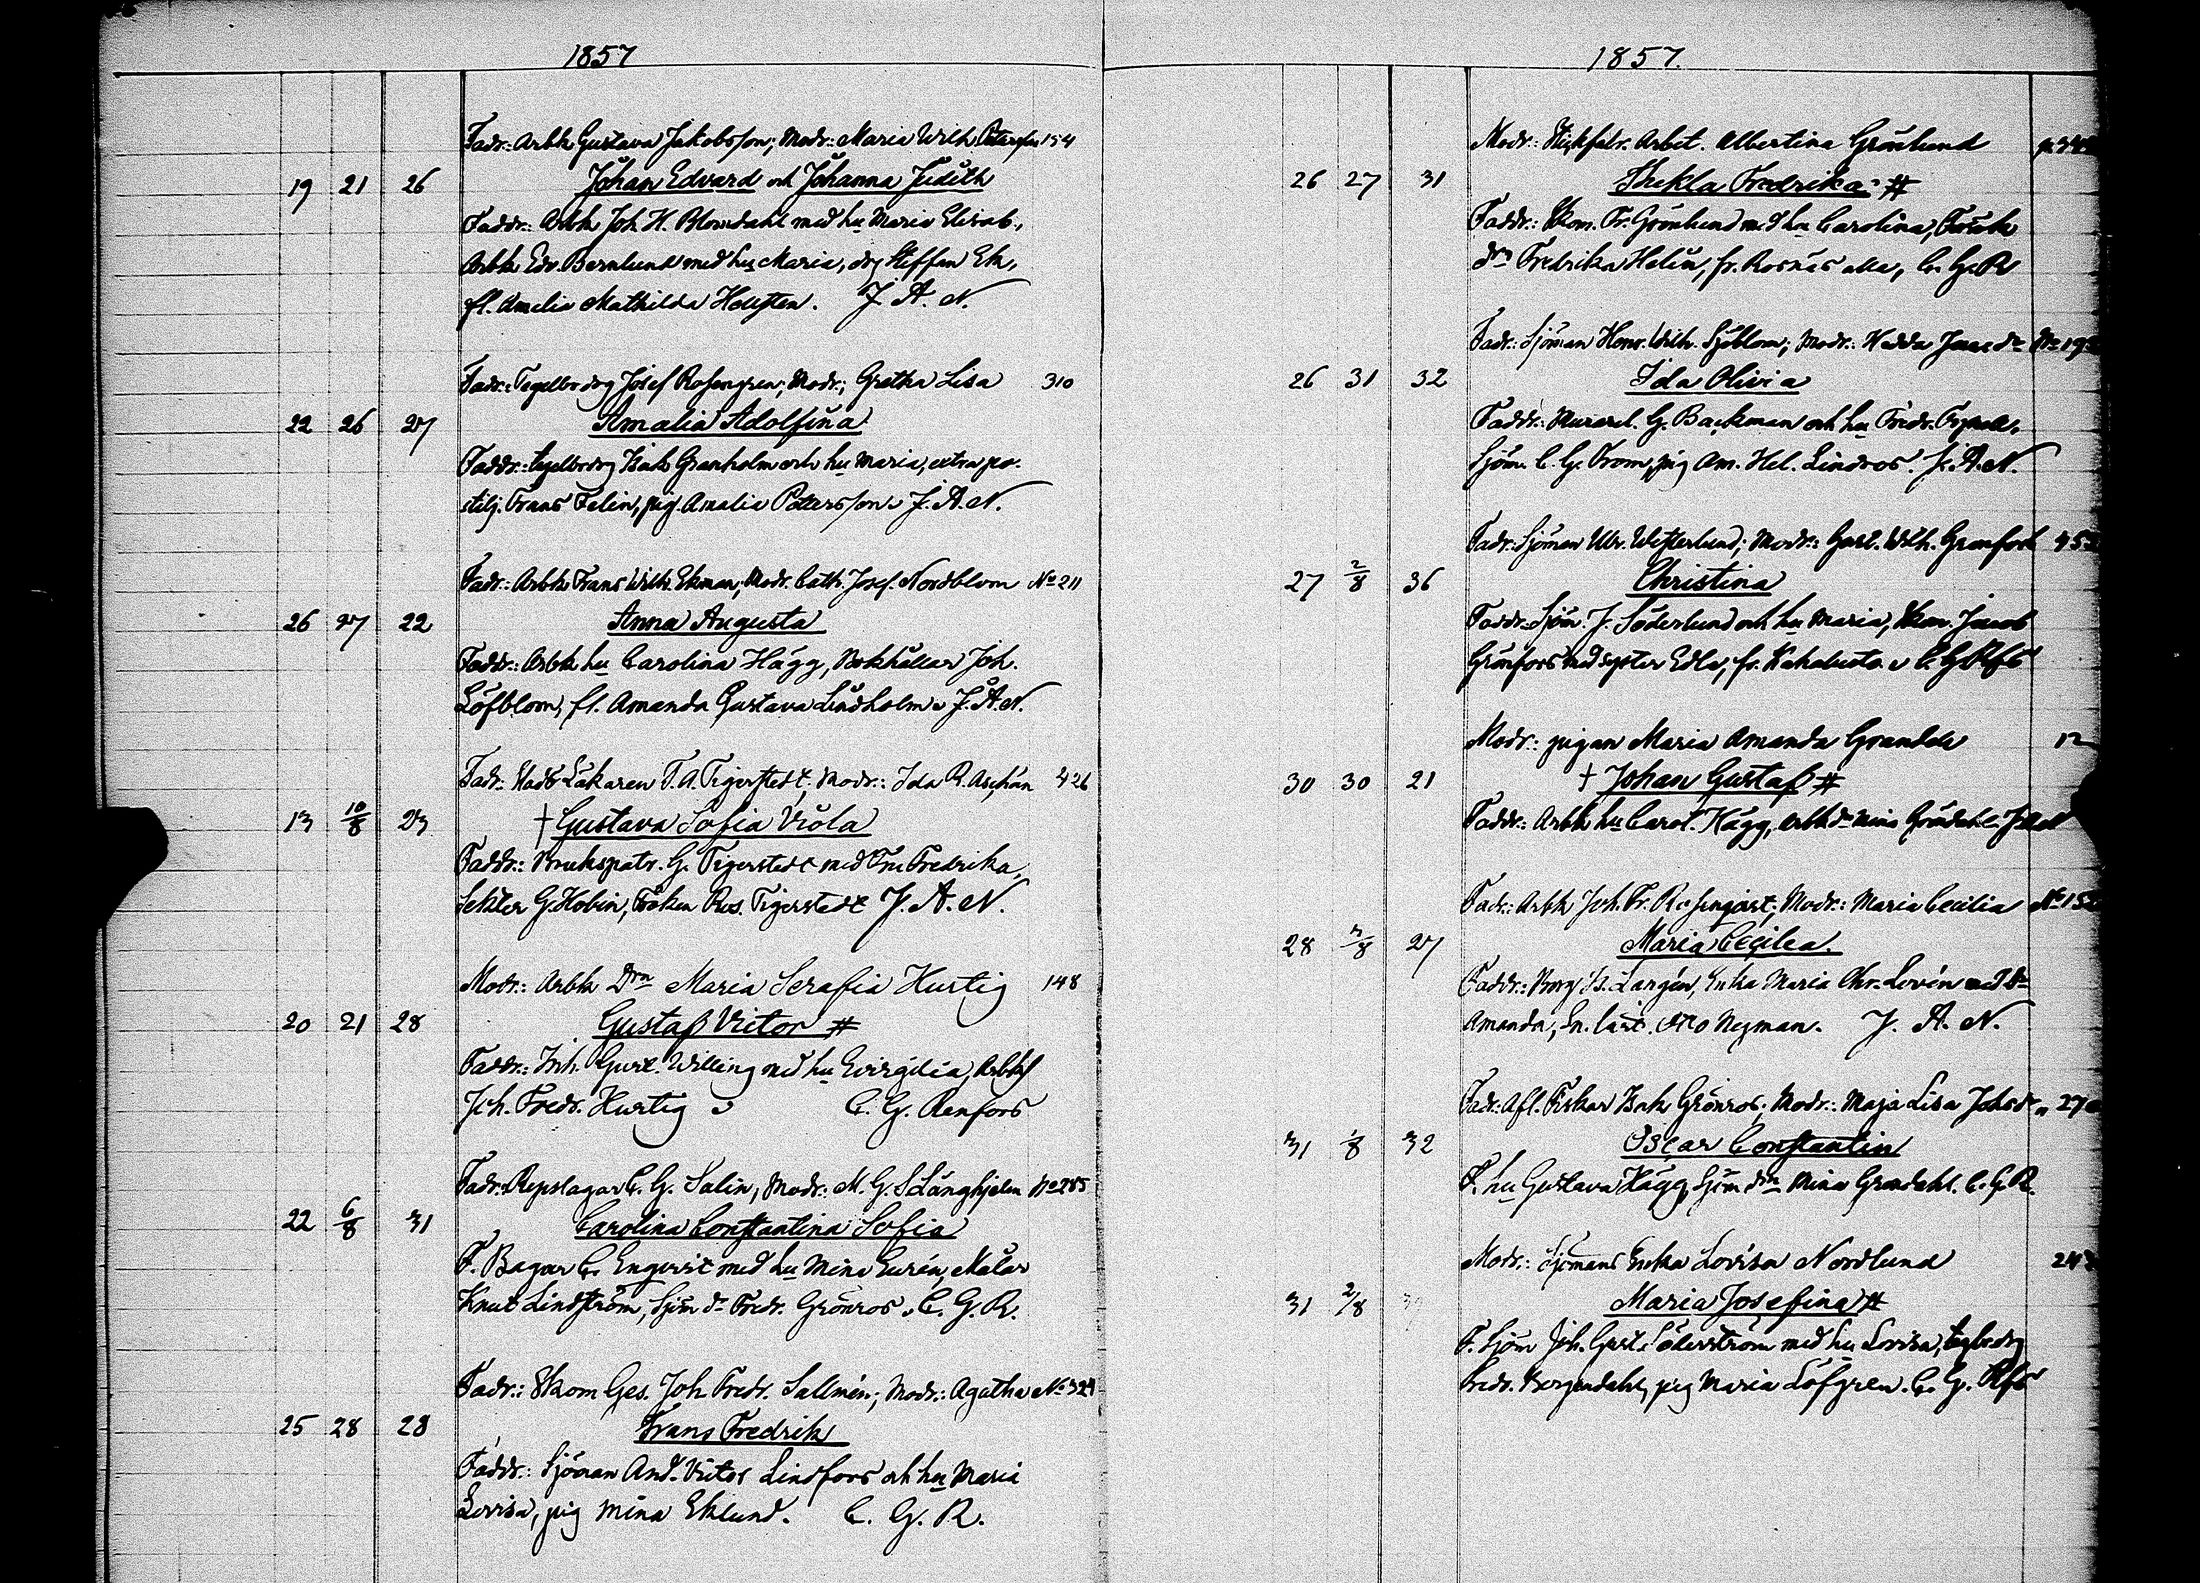 1857
Fadr: Arbk Gustava Jakobsson; Modr: Maria Wilh 154
19 21 26 Johan Edvard och Johanna Judith
Faddr: Arbk Joh H. Blomdahl med hu Maria Elisab.,
Arbk Edv. Bernlund med hu Maria, drg Steffan Ek,
fl. Amelia Mathilda Hollsten. J. A. N.
Fadr: Tegelbr drg Josef Rosengren; Modr; Gretha Lisa 310
22 26 27 Amalia Adolfina
Faddr: tegelbr drg Isak Granholm och hu Maria, extra po-
stilj. Frans Felin, pig. Amalia Pettersson. J. A. N.
Fadr: Arbk Frans Wilh. Ekman; Modr. Cath. Josef. Nordblom No 211
26 27 22 Anna Augusta
Faddr: Arbk hu Carolina Hägg, Bokhållar Joh.
Löfblom, fl. Amanda Gustava Lindholm. J. A. N.
Fadr: Stads Läkaren F. A. Tigerstedt; Modr: Ida R. Aschan 426
13 10/8 23 † Gustava Sofia Viola
Faddr: Brukspatr. G. Tigerstedt med Fru Fredrika,
Sekter G. Hobin, Fröken Ros. Tigerstedt J. A. N.
Modr: Arbk Drn Maria Serafia Hurtig 148
20 21 28 Gustaf Victor #
Faddr: Inh. Gust. Willing med hu Evirgilia, Arbk
Joh. Fredr. Hurtig C. G. Renfors
Fadr: Repslagar C. G. Salin, Modr: M. G. S Långhjelm No 285
22 6/8 31 Carolina Constantina Sofia
F. Bagar C. Engqvist med hu Mina Eurén, Målar
Knut Lindström, Sjöm dr Fredr. Grönros. C. G. R.
Fadr: Skom Ges. Joh Fredr. Sallmén; Modr: Agatha No 324
25 28 28 Frans Fredrik
Faddr: Sjöman And. Victor Lindfors och hu Maria
Lovisa, pig Mina Eklund. C. G. R.
1857.
Modr: Arbet. Albertina Grönlund
26 27 31 Thekla Fredrika #
Faddr: Skom. Fr. Grönlund med hu Carolina,
drn Fredrika Helin, fr. Rosnäs C. G. R
Fadr: Sjöman Henr. Wilh. Sjöblom; Modr: Hedda
26 31 32 Ida Olivia
Faddr: Murarel. G. Backman och hu Fredr.
Sjöm. C. G. From, pig Am. Hel. Lindros. J. A. N.
Fadr: Sjöman Ulr. Westerlund; Modr: Gust. Wilh. Granfors
27 2/8 36 Christina
Faddr. Sjöm. J. Söderlund och hu Maria, Skom. Jacob
Grönfors med syster Edla, fr.
Modr: pigan Maria Amanda
30 30 21 † Johan Gustaf #
Faddr: Arbk hu Carol. Hägg, Arbk dr Mina
Fadr: Arbk Joh. Fr. Rosenqvist; Modr: Maria Cecilia
28 7/8 27 Maria Cecilea.
Faddr: Borg. Is. Largén, Enka Maria Chr. Lovén med Dr
Amanda, Sn. lärl. Otto Nyman. J. A. N.
Fadr: Afl. Fiskar Isak Grönros, Modr: Maja Lisa Johsdr
31 1/8 32 Oscar Constantin
F. hu Gustava Hägg, Sjöm drn Mina Grondahl. C. G. R.
Modr: Sjömans Enka Lovisa Nordlund
31 2/8 Maria Josefina #
F. Sjöm Joh. Gust. Söderström med hu Lovisa,
Fredr. Borgendahl, pig Maria Löfgren. C. G.